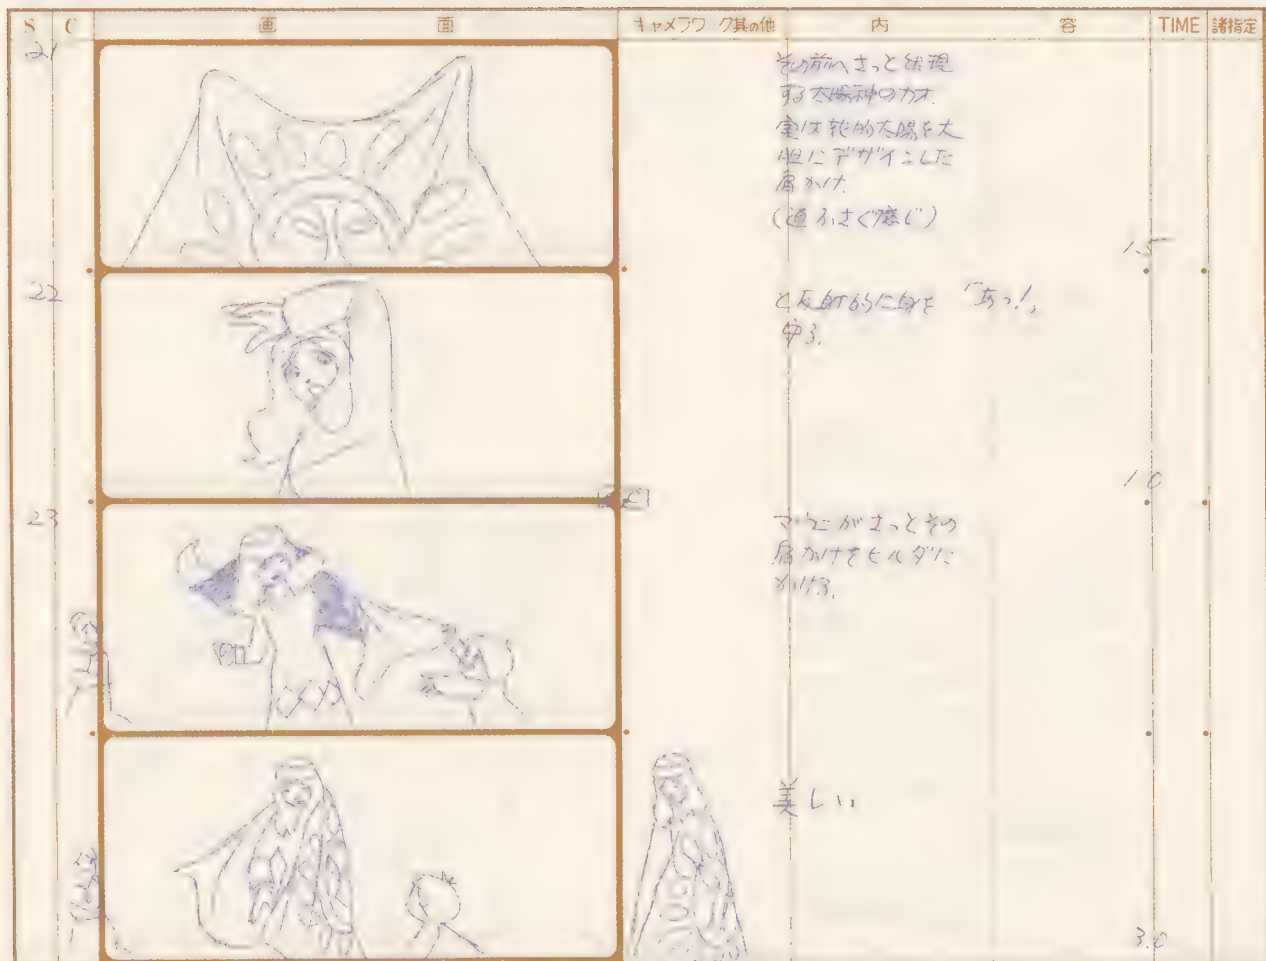 S C 画 面 キャメラワーク其の他 内 容 TIME 諸指定
21
その前へさっと出現
する太陽神のカオ.
実は乾的太陽を大
胆にデザインした
肩かけ.
(道ふさぐ感じ)
1.5
22
と反射的に身を 「あっ!」
守る.
1.0
23
マウニがさっとその
肩かけをヒルダに
かける.
美しい
3.0